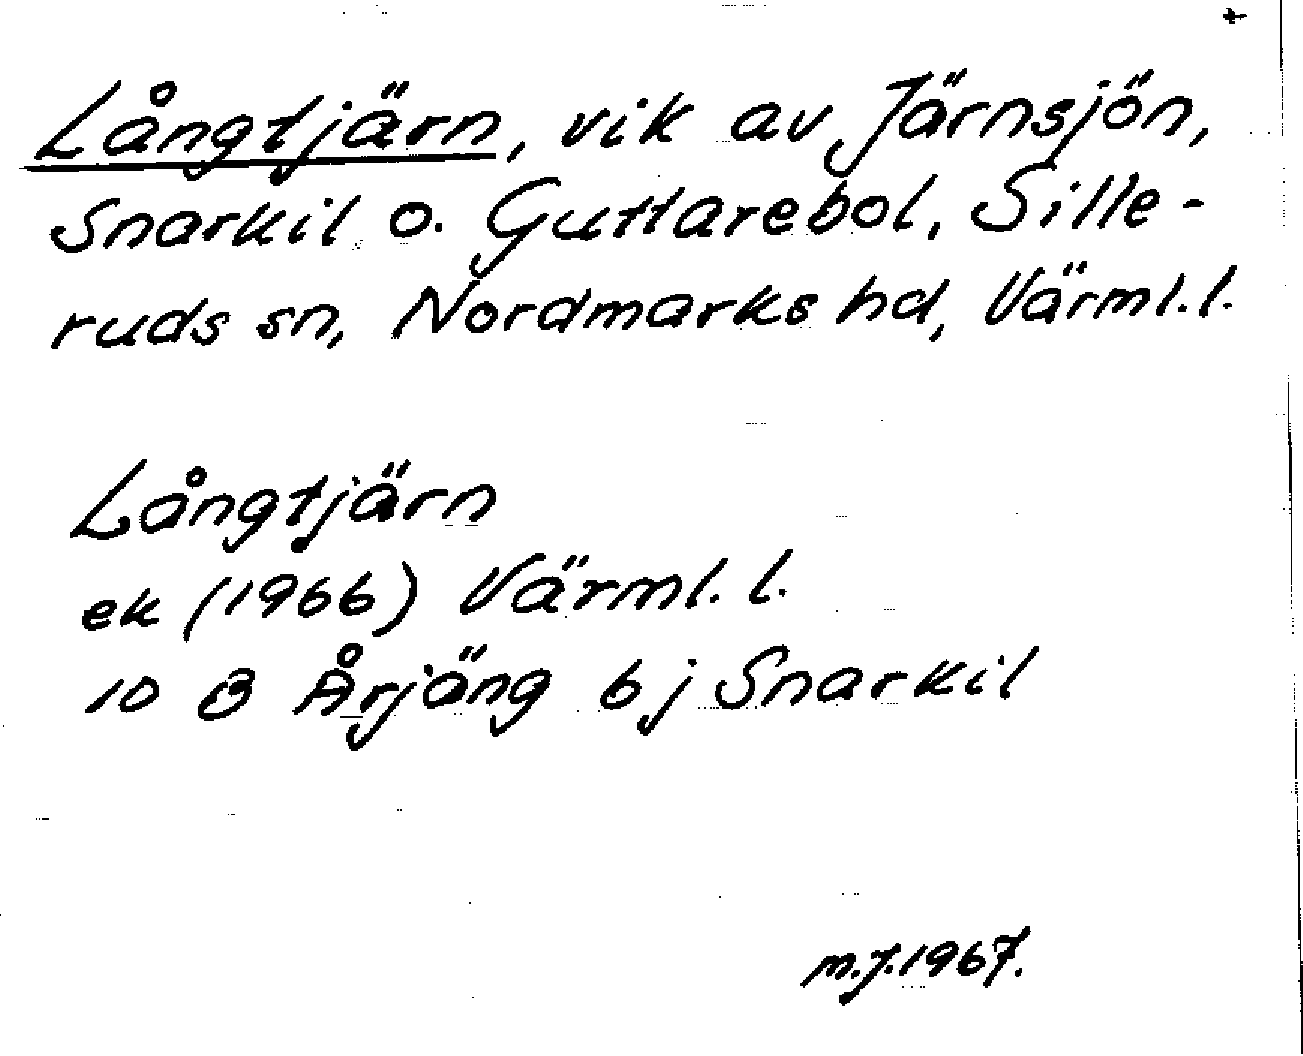 +
Långtjärn, vik av Järnsjön,
Snarkil o. Guttarebol, Sille-
ruds sn, Nordmarks hd, Värml. l.
Långtjärn
ek (1966) Värml. l.
10 B Årjäng 6 j Snarkil
m.J. 1967.